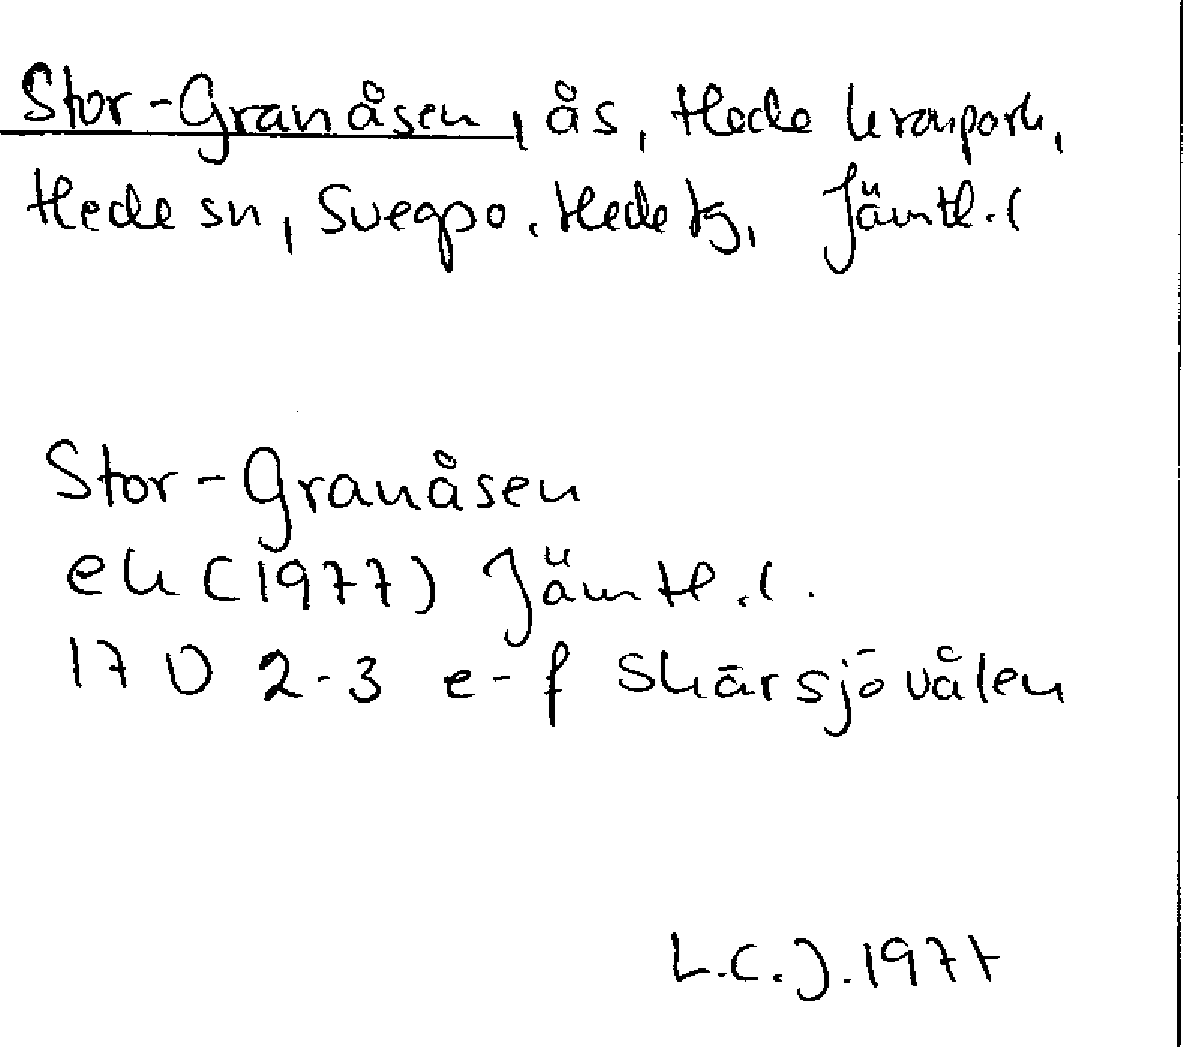 Stor-Granåsen, ås, Hede kronpark,
Hede sn, Svegpo. Hede tg, Jämtl. l
Stor-Granåsen
ek (1977) Jämtl. l.
17 D 2-3 e-f Skärsjövålen
L.C.J. 1977